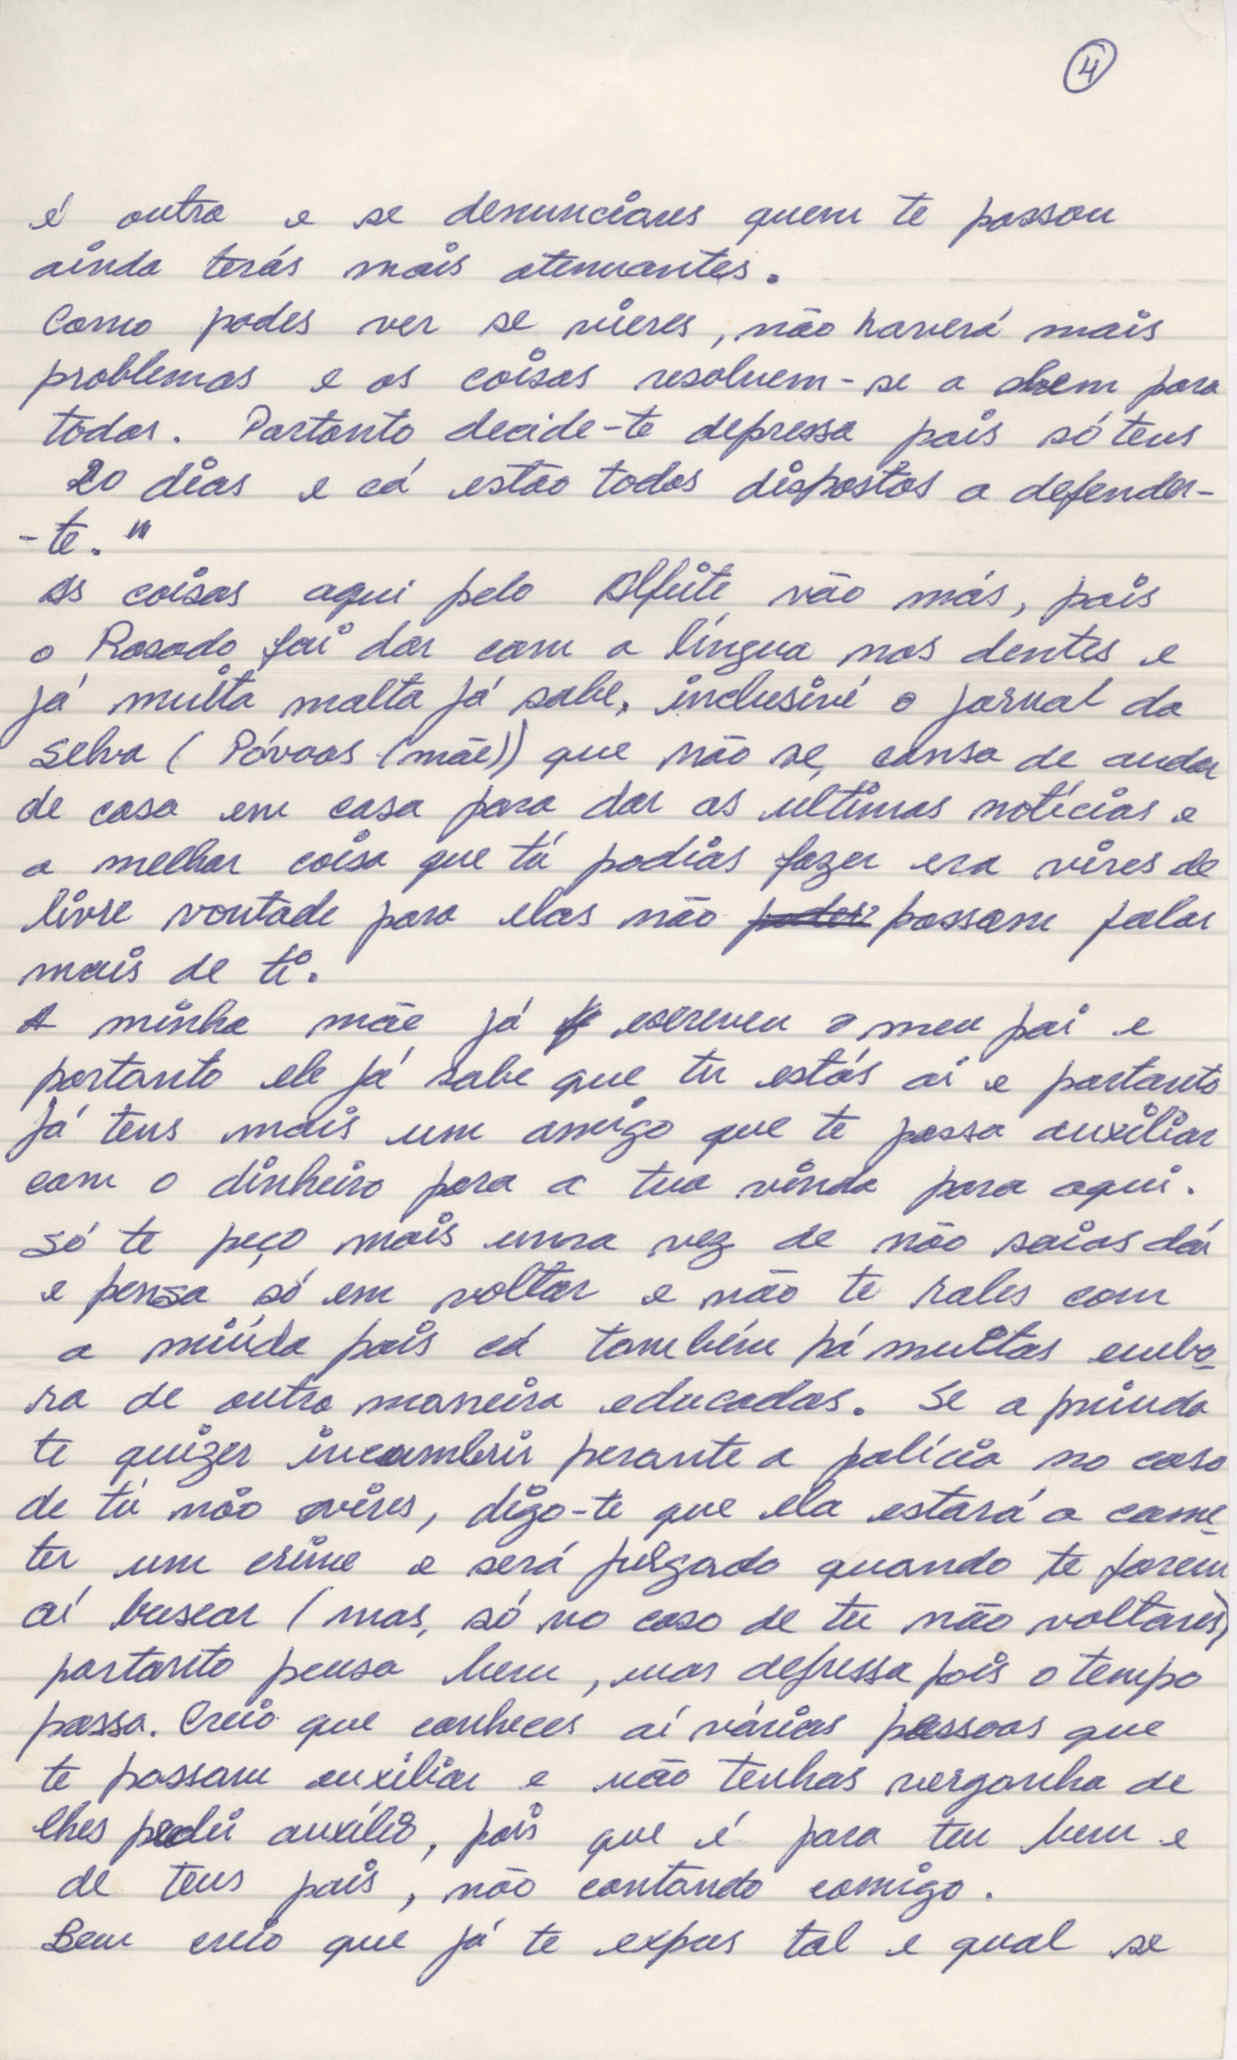 4
é outra e se denunciares quem te passou
ainda terás mais atenuantes.
Como podes ver se vieres, não haverá mais
problemas e as coisas resolvem-se a bem para
todos. Portanto decide-te depressa pois só tens
20 dias e cá estão todos dispostos a defender-
-te."
As coisas aqui pelo Alfeite vão más, pois
o Rosado foi dar com a língua nos dentes e
já muita malta já sabe, inclusivé o jornal da
selva (Póvoas (mãe)) que não se cansa de andar
de casa em casa para dar as ultimas notícias e
a melhor coisa que tú podias fazer era vires de
livre vontade para elas não possam falar
mais de ti.
A minha mãe já escreveu o meu pai e
portanto ele já sabe que tu estás aí e portanto
já tens mais um amigo que te possa auxiliar
com o dinheiro para a tua vinda para aqui.
Só te peço mais uma vez de não saias daí
e pensa só em voltar e não te rales com
a miúda pois cá também há muitas embo-
ra de outra maneira educadas. Se a miuda
te quizer incumbrir perante a polícia no caso
de tú não vires, digo-te que ela estará a come-
ter um crime e será julgado quando te forem
aí buscar (mas, só no caso de tu não voltares)
portanto pensa bem, mas depressa pois o tempo
passa. Creio que conheces aí várias pessoas que
te possam auxiliar e não tenhas vergonha de
lhes pedir auxílio, pois que é para teu bem e
de teus pais, não contando comigo.
Bem creio que já te expus tal e qual se